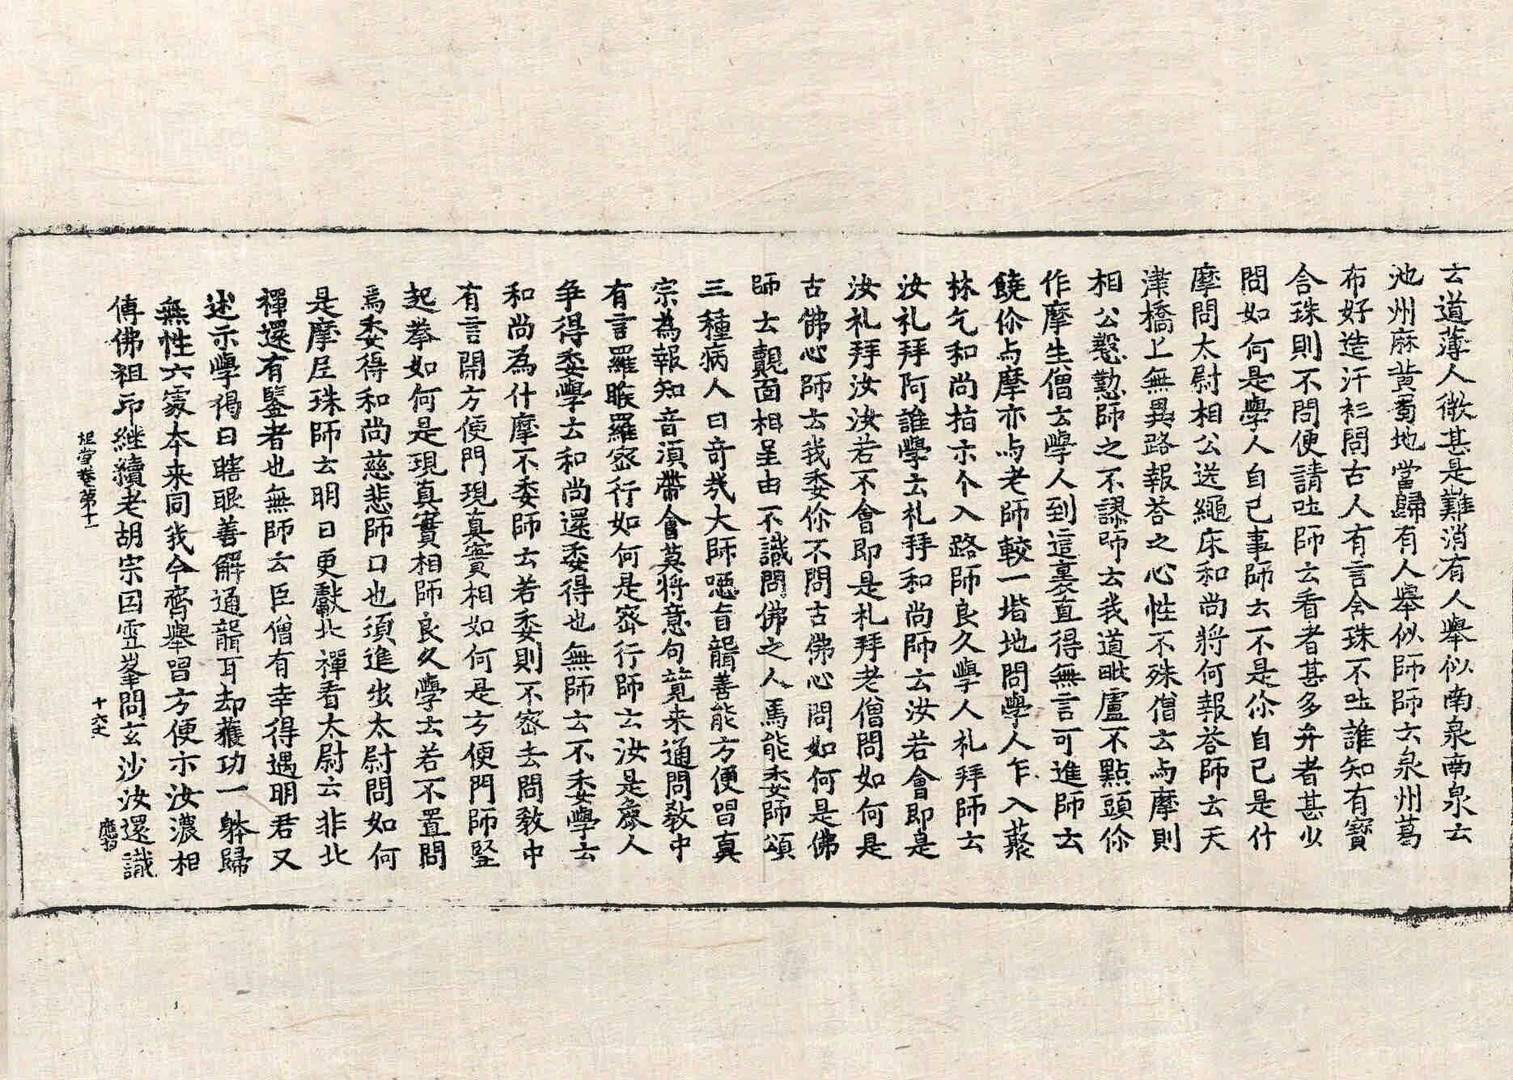 云道薄人微甚是難消有人舉似南泉南泉云
池州麻黃蜀地當歸有人舉似師師云泉州葛
布好造汗衫問古人有言含珠不吐誰知有寶
含珠則不問便請吐師云看者甚多弁者甚少
問如何是學人自己事師云不是你自己是什
摩問太尉相公送繩床和尚將何報荅師云天
津橋上無異路報荅之心性不殊僧云与摩則
相公慇懃師之不謬師云我道毗盧不點頭你
作摩生僧云學人到這裏直得無言可進師云
饒你与摩亦与老師較一堦地問學人乍入藂
林乞和尚指示个入路師良久學人礼拜師云
汝礼拜阿誰學云礼拜和尚師云汝若會即是
汝礼拜汝汝若不會即是礼拜老僧問如何是
古佛心師云我委你不問古佛心問如何是佛
師云覿面相呈由不識問佛之人焉能委師頌
三種病人曰奇哉大師𢙣盲聾善能方便習真
宗為報知音須帶會莫將意句竟來通問教中
有言羅睺羅密行如何是密行師云汝是癈人
争得委學云和尚還委得也無師云不委學云
和尚為什摩不委師云若委則不密去問教中
有言開方便門現真實相如何是方便門師竪
起拳如何是現真實相師良久學云若不置問
焉委得和尚慈悲師口也須進出太尉問如何
是摩尼珠師云明日更獻北禪看太尉云非北
禪還有鑒者也無師云臣僧有幸得遇明君又
述示學偈曰瞎眼善解通聾耳却獲功一躰歸
無性六處本来同我今齊舉習方便示汝濃相
傳佛祖印継續老胡宗因雪峯問玄沙汝還識
祖堂卷第十一 十六丈